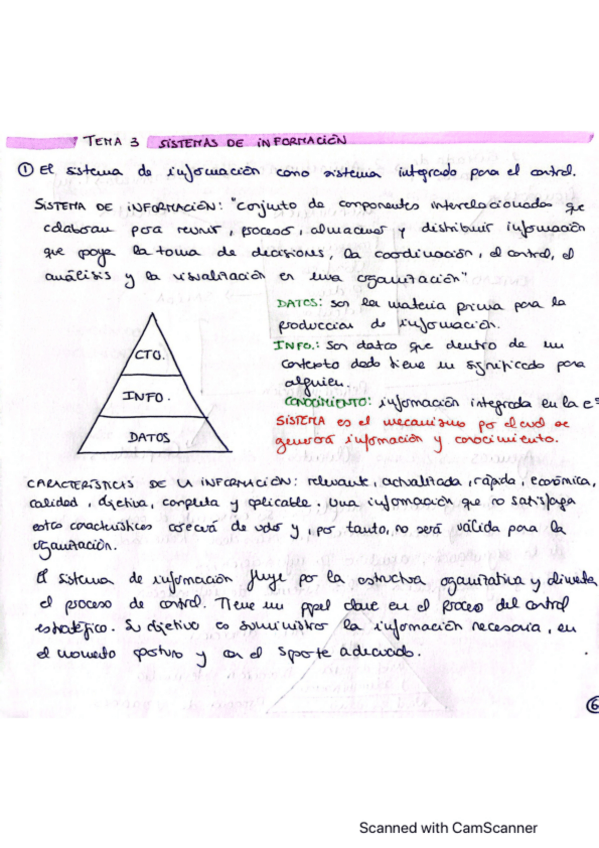 TEMA 3 SISTEMAS DE INFORMACIÓN
① El sistema de información como sistema integrado para el control.
SISTEMA DE INFORMACIÓN: "Conjunto de componentes interrelacionados que
colaboran para reunir, procesar, almacenar y distribuir información
que apoya la toma de decisiones, la coordinación, el control, el
análisis y la visualización en una organización"
CTO.
INFO.
DATOS
DATOS: son la materia prima para la
producción de información.
INFO.: son datos que dentro de un
contexto dado tiene un significado para
alguien.
CONOCIMIENTO: información integrada en la eª
SISTEMA es el mecanismo por el cual se
generará información y conocimiento.
CARACTERÍSTICAS DE LA INFORMACIÓN: relevante, actualizada, rápida, económica,
calidad, objetiva, completa y aplicable. Una información que no satisfaga
estas características carecerá de valor y, por tanto, no será válida para la
organización.
El sistema de información fluye por la estructura organizativa y alimenta
el proceso de control. Tiene un papel clave en el proceso del control
estratégico. Su objetivo es suministrar la información necesaria, en
el momento oportuno y con el soporte adecuado.
6
Scanned with CamScanner